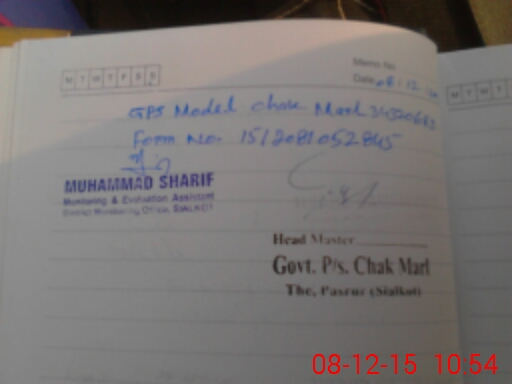 M T W T F S S
Memo No
Date 08 . 12
M T W T
GPS Model Chak Marl
Form No. 1512081052845
MUHAMMAD SHARIF
Monitoring & Evaluation Assistant
District Monitoring Officer, SIALKOT
Head Master
Govt. P/s. Chak Marl
The, Pasrur (Sialkot)
08-12-15 10:54